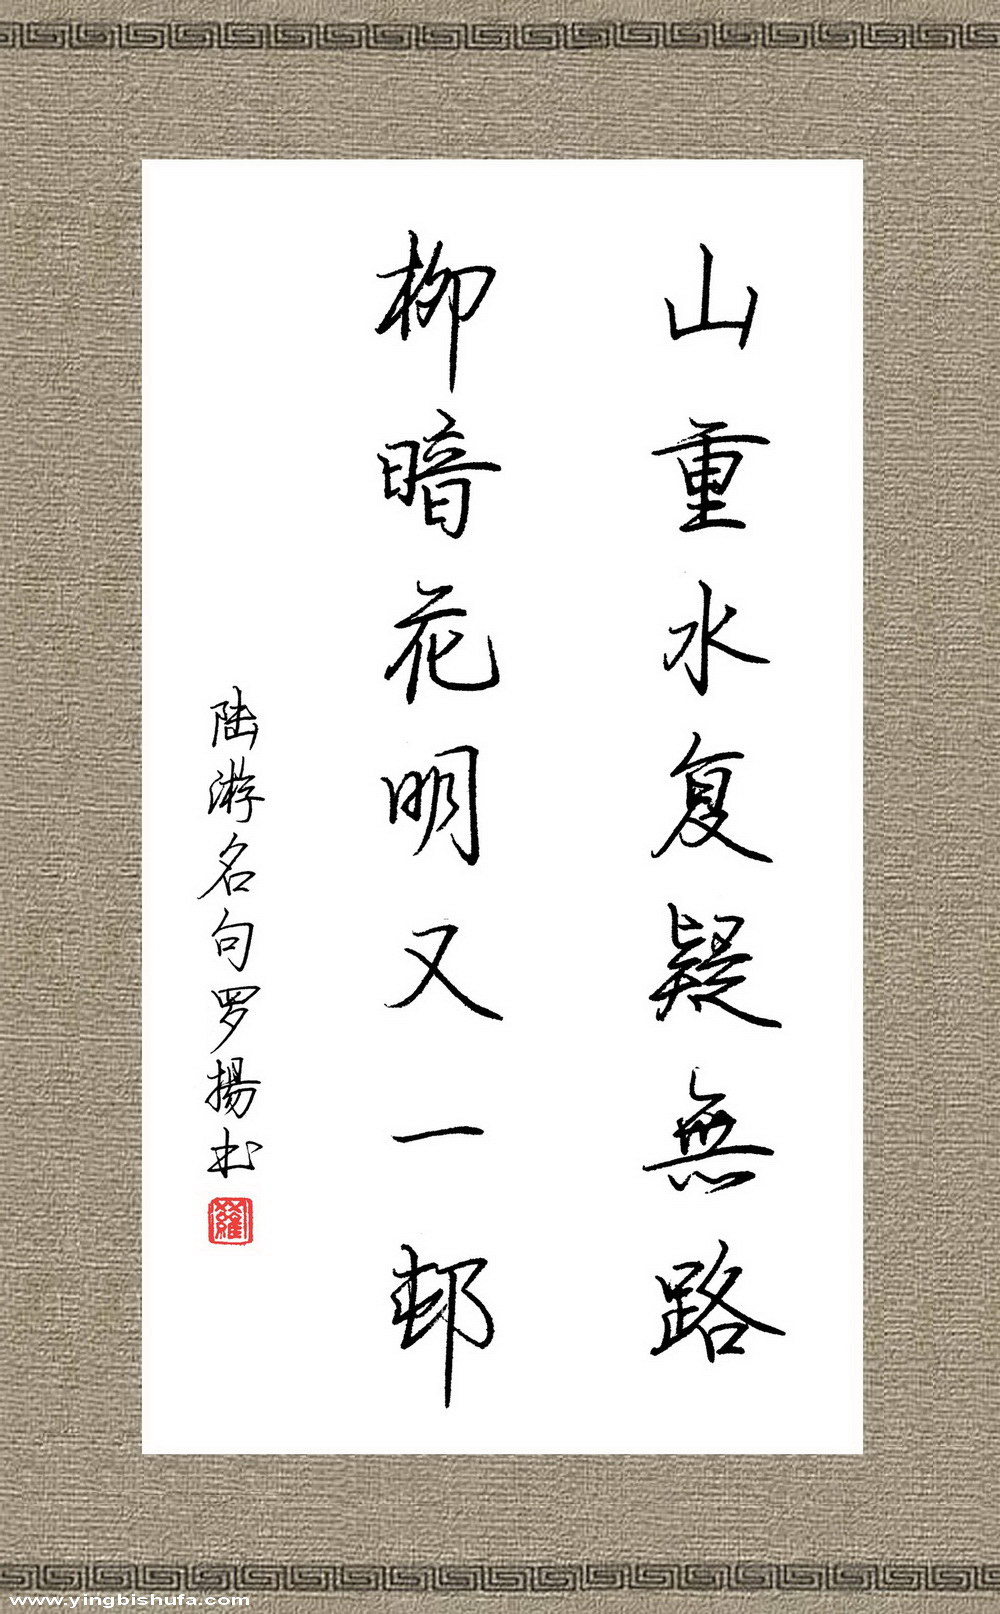 山重水复疑無路
柳暗花明又一邨
陆游名句罗揚书
羅
www.yingbishufa.com